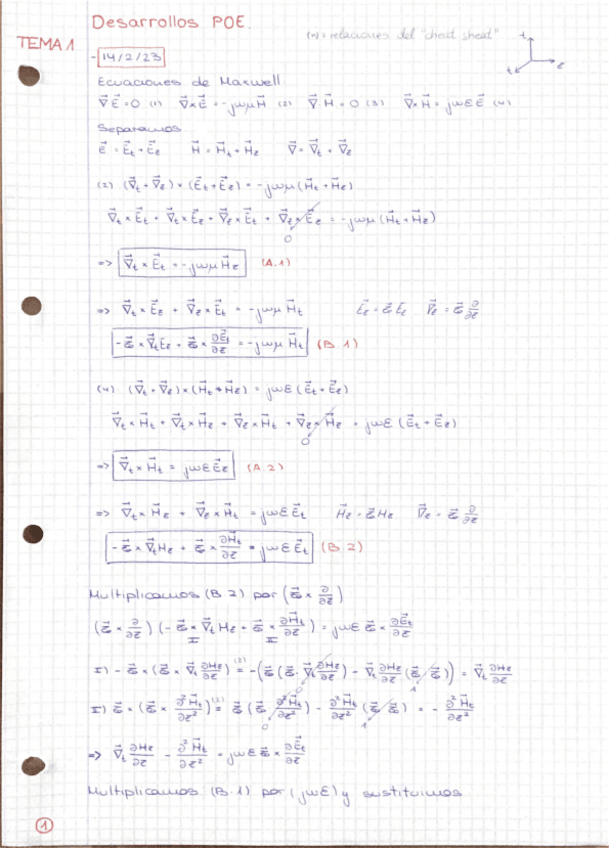 Desarrollos POE.
(n) = relaciones del "cheat sheat"
TEMA 1
t
z
t
- 14/2/23
Ecuaciones de Maxwell
∇⃗E⃗=0 (1) ∇⃗×E⃗=-jωμH⃗ (2) ∇⃗·H⃗=0 (3) ∇⃗×H⃗=jωεE⃗ (4)
Separamos
E⃗=E⃗t+E⃗z H⃗=H⃗t+H⃗z ∇⃗=∇⃗t+∇⃗z
(2) (∇⃗t+∇⃗z)×(E⃗t+E⃗z)=-jωμ(H⃗t+H⃗z)
∇⃗t×E⃗t+∇⃗t×E⃗z+∇⃗z×E⃗t+∇⃗z×E⃗z=-jωμ(H⃗t+H⃗z)
0
=> ∇⃗t×E⃗t=-jωμH⃗z (A.1)
=> ∇⃗t×E⃗z+∇⃗z×E⃗t=-jωμH⃗t E⃗z=z⃗Ez ∇⃗z=z⃗ ∂/∂z
-z⃗×∇⃗tEz+z⃗×∂E⃗t/∂z=-jωμH⃗t (B.1)
(4) (∇⃗t+∇⃗z)×(H⃗t+H⃗z)=jωε(E⃗t+E⃗z)
∇⃗t×H⃗t+∇⃗t×H⃗z+∇⃗z×H⃗t+∇⃗z×H⃗z=jωε(E⃗t+E⃗z)
0
=> ∇⃗t×H⃗t=jωεE⃗z (A.2)
=> ∇⃗t×H⃗z+∇⃗z×H⃗t=jωεE⃗t H⃗z=z⃗Hz ∇⃗z=z⃗ ∂/∂z
-z⃗×∇⃗tHz+z⃗×∂H⃗t/∂z=jωεE⃗t (B.2)
Multiplicamos (B.2) por (z⃗×∂/∂z)
(z⃗×∂/∂z)(-z⃗×∇⃗tHz+z⃗×∂H⃗t/∂z)=jωεz⃗×∂E⃗t/∂z
I II
I) -z⃗×(z⃗×∇⃗t ∂Hz/∂z) (2)= -(z⃗(z⃗·∇⃗t ∂Hz/∂z)-∇⃗t ∂Hz/∂z(z⃗·z⃗))=∇⃗t ∂Hz/∂z
0 1
II) z⃗×(z⃗×∂²H⃗t/∂z²) (2)= z⃗(z⃗·∂²H⃗t/∂z²)-∂²H⃗t/∂z²(z⃗·z⃗)=-∂²H⃗t/∂z²
0 1
=> ∇⃗t ∂Hz/∂z-∂²H⃗t/∂z²=jωεz⃗×∂E⃗t/∂z
Multiplicamos (B.1) por (jωε) y sustituimos
1